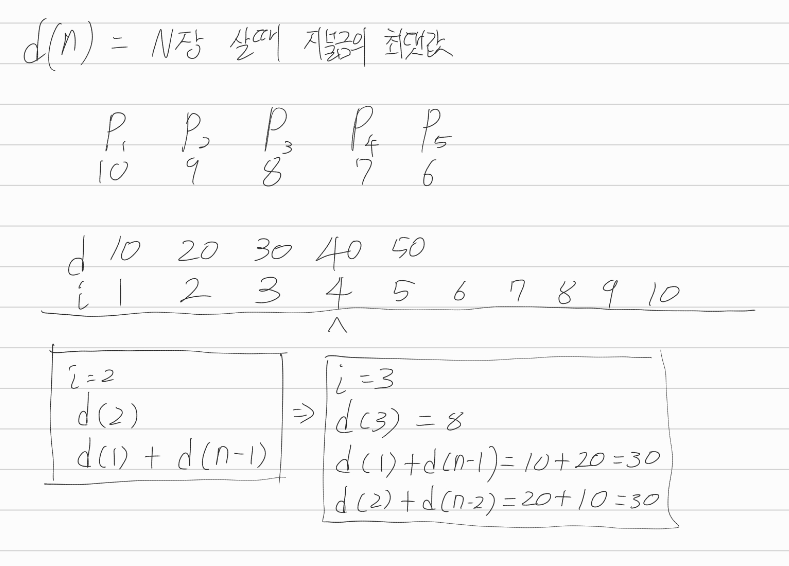 d(n) = N장 살때 지불금의 최댓값
P₁ P₂ P₃ P₄ P₅
10 9 8 7 6
d 10 20 30 40 50
i 1 2 3 4 5 6 7 8 9 10
^
i=2
d(2)
d(1) + d(n-1)
⇒
i=3
d(3) = 8
d(1)+d(n-1)=10+20=30
d(2)+d(n-2)=20+10=30